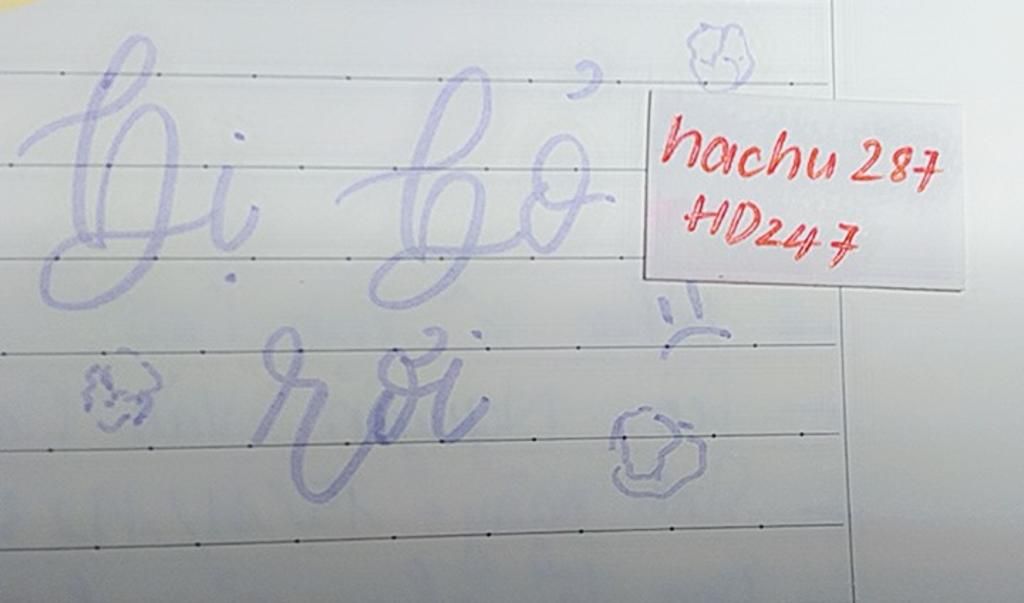 bị bỏ
rơi
hachu 287
HD247